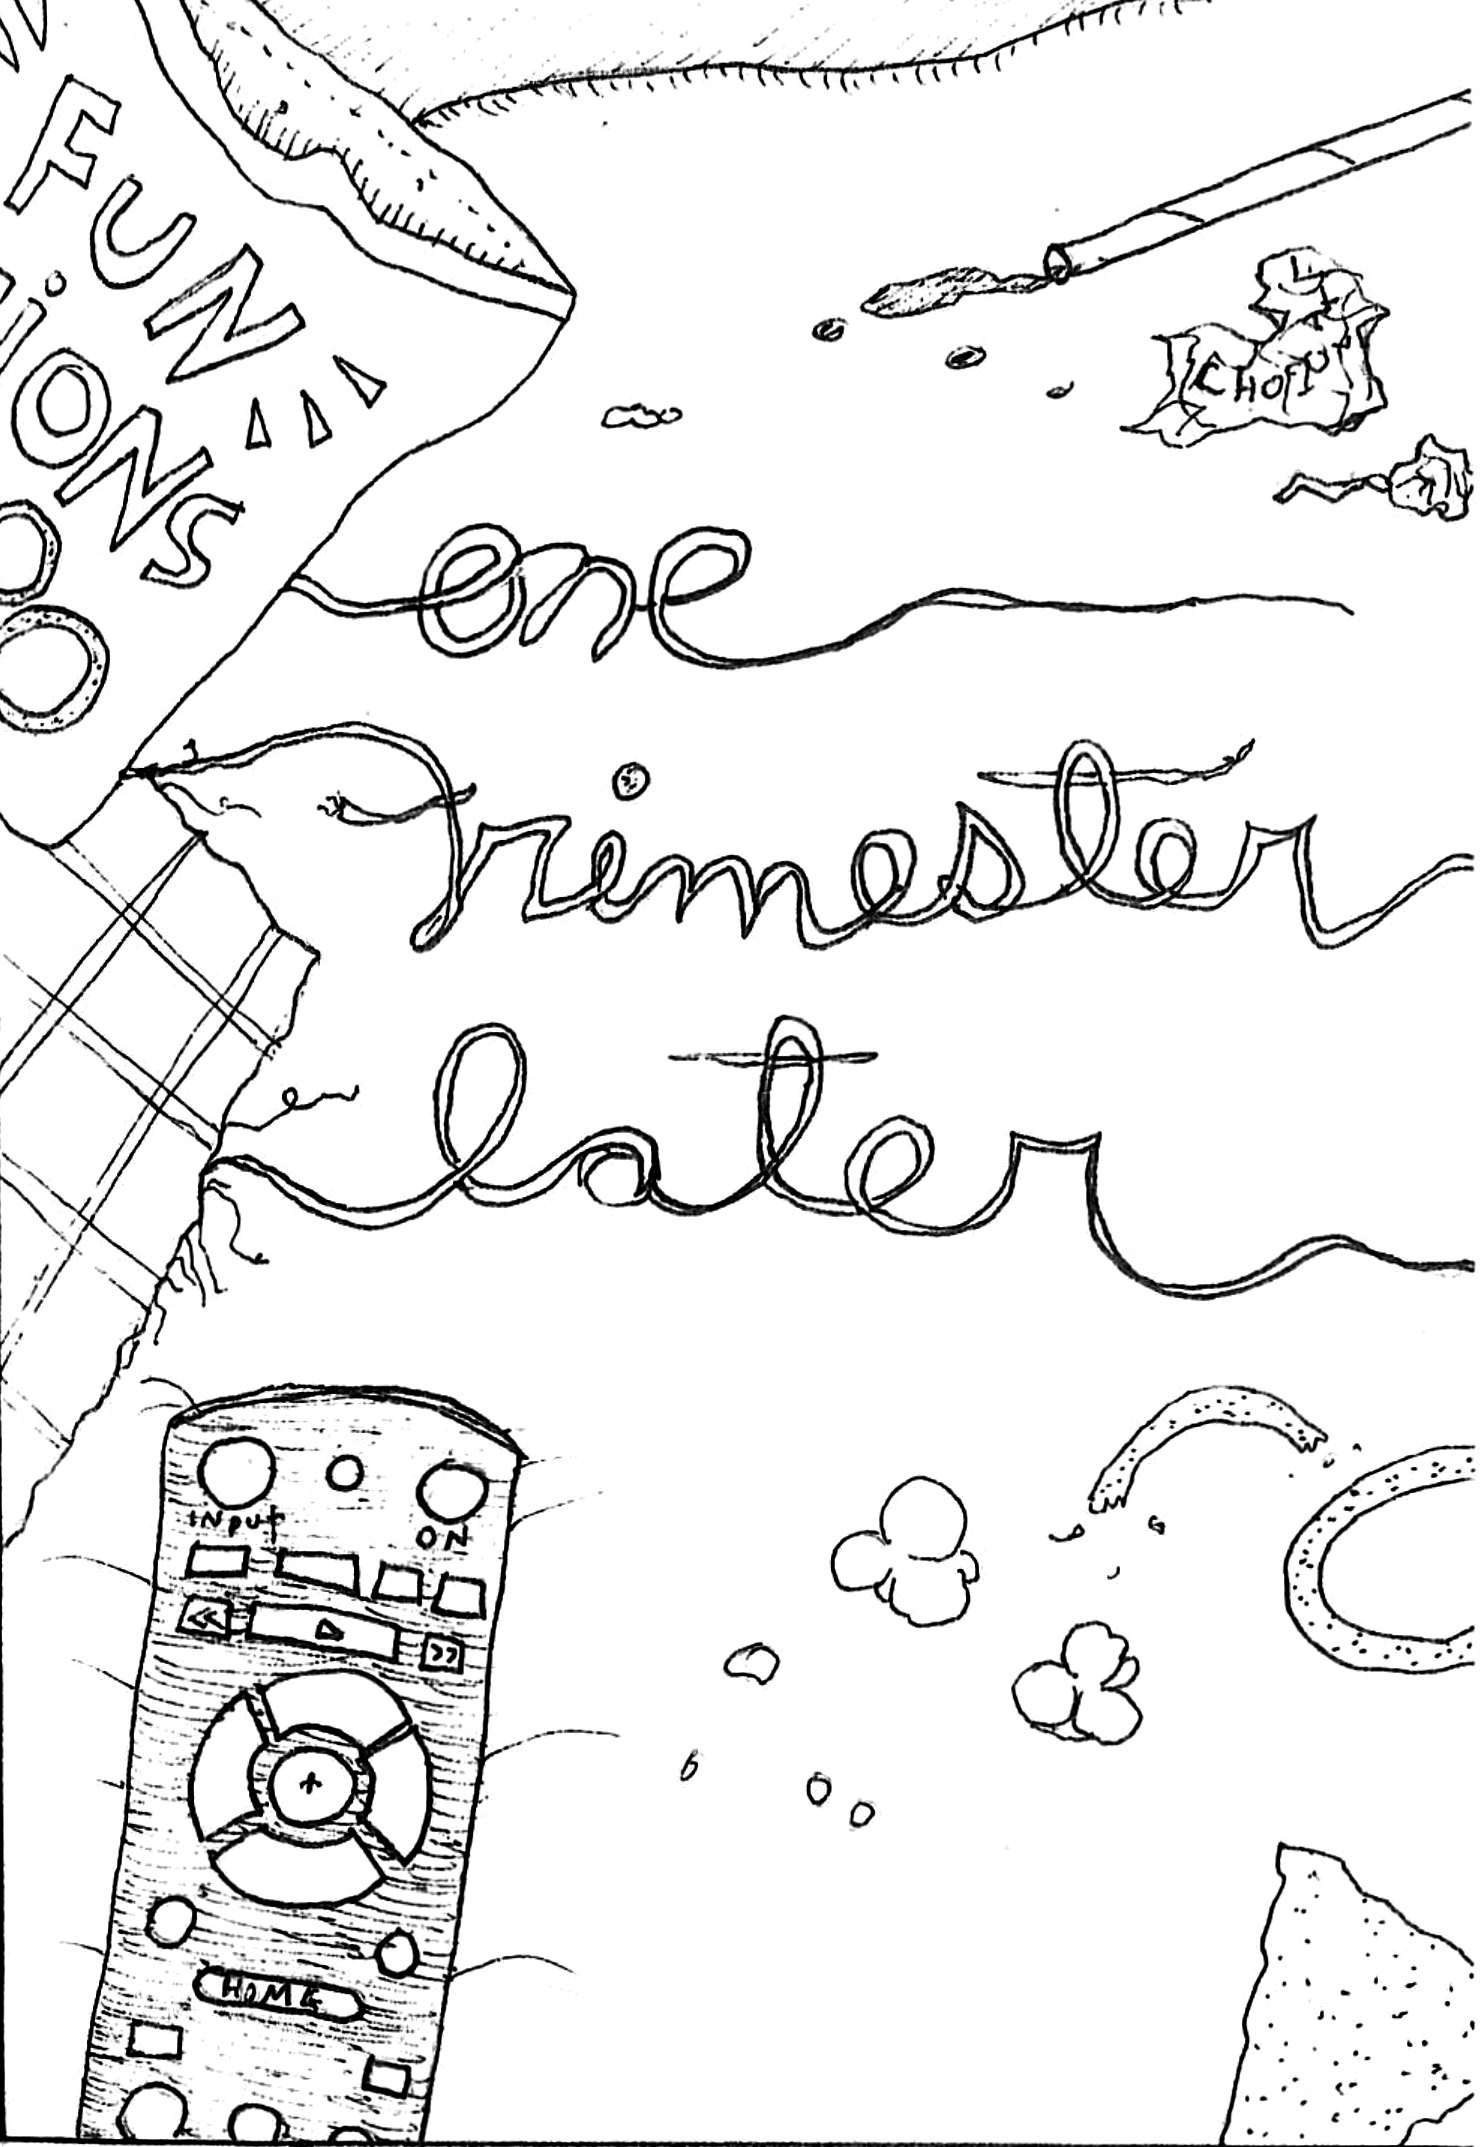 FUN
iONS
CHOP
one
Trimester
later
INput
ON
HOME